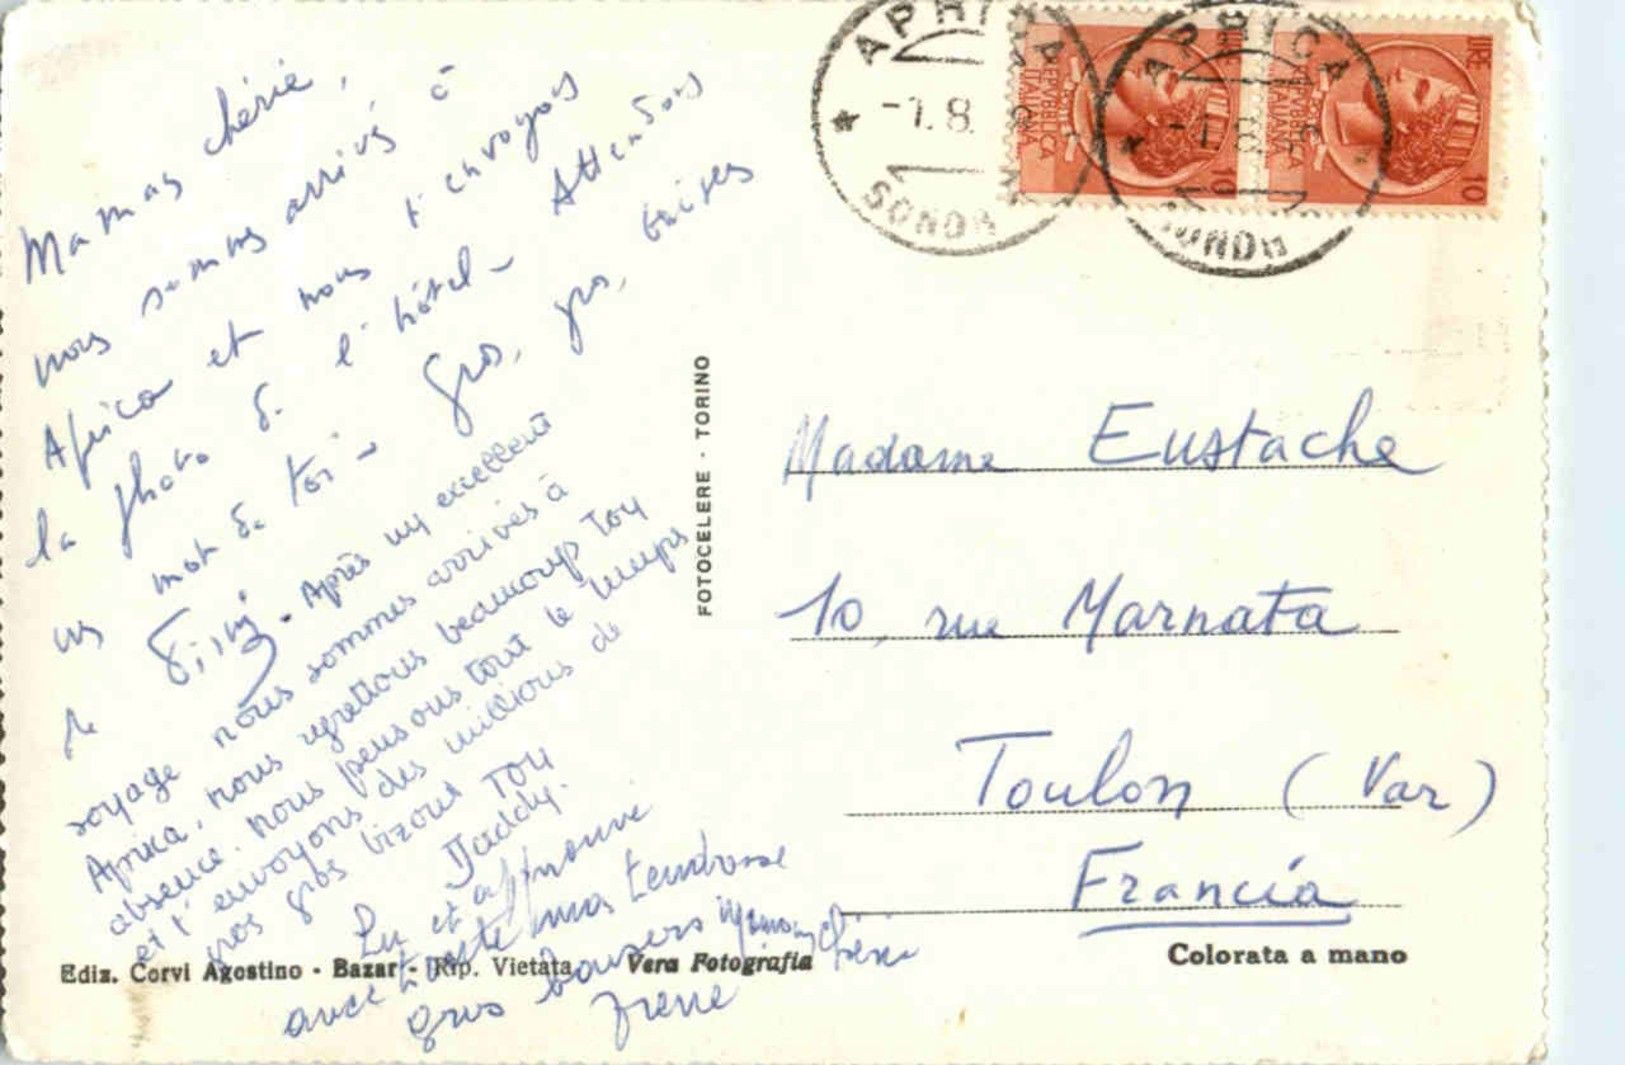 Maman chérie,
nous sommes arrivés à
Aprica et nous t'envoyons
la photo de l'hôtel - Attendons
un mot de toi - Gros, gros, bises
Après un excellent
voyage nous sommes arrivés à
Aprica, nous regrettons beaucoup ton
absence. nous pensons tout le temps
et t'envoyons des millions de
gros gros bizous ton
Daddy.
Lu et approuvé
avec toute ma tendresse
gros baisers maman chérie
Irène
APRICA
-7.8.
SONDRIO
APRICA
-7.8.
SONDRIO
LIRE 10
REPVBBLICA ITALIANA
LIRE 10
REPVBBLICA ITALIANA
FOTOCELERE - TORINO
Madame Eustache
10, rue Marnata
Toulon (Var)
Francia
Ediz. Corvi Agostino - Bazar - Rip. Vietata Vera Fotografia
Colorata a mano